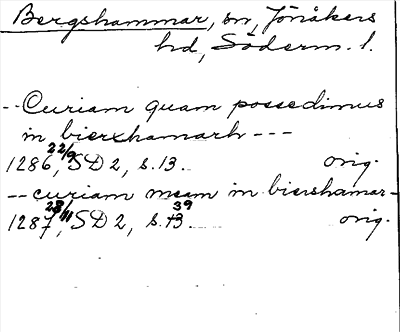 Bergshammar, sn, Jönåkers
hd, Söderm. l.
-- Curiam quam possedimus
in bierxhamarh ---
1286 22/9, SD 2, s. 13. orig.
-- curiam meam in biershamar-
1287 28/11, SD 2, s. 39 orig.